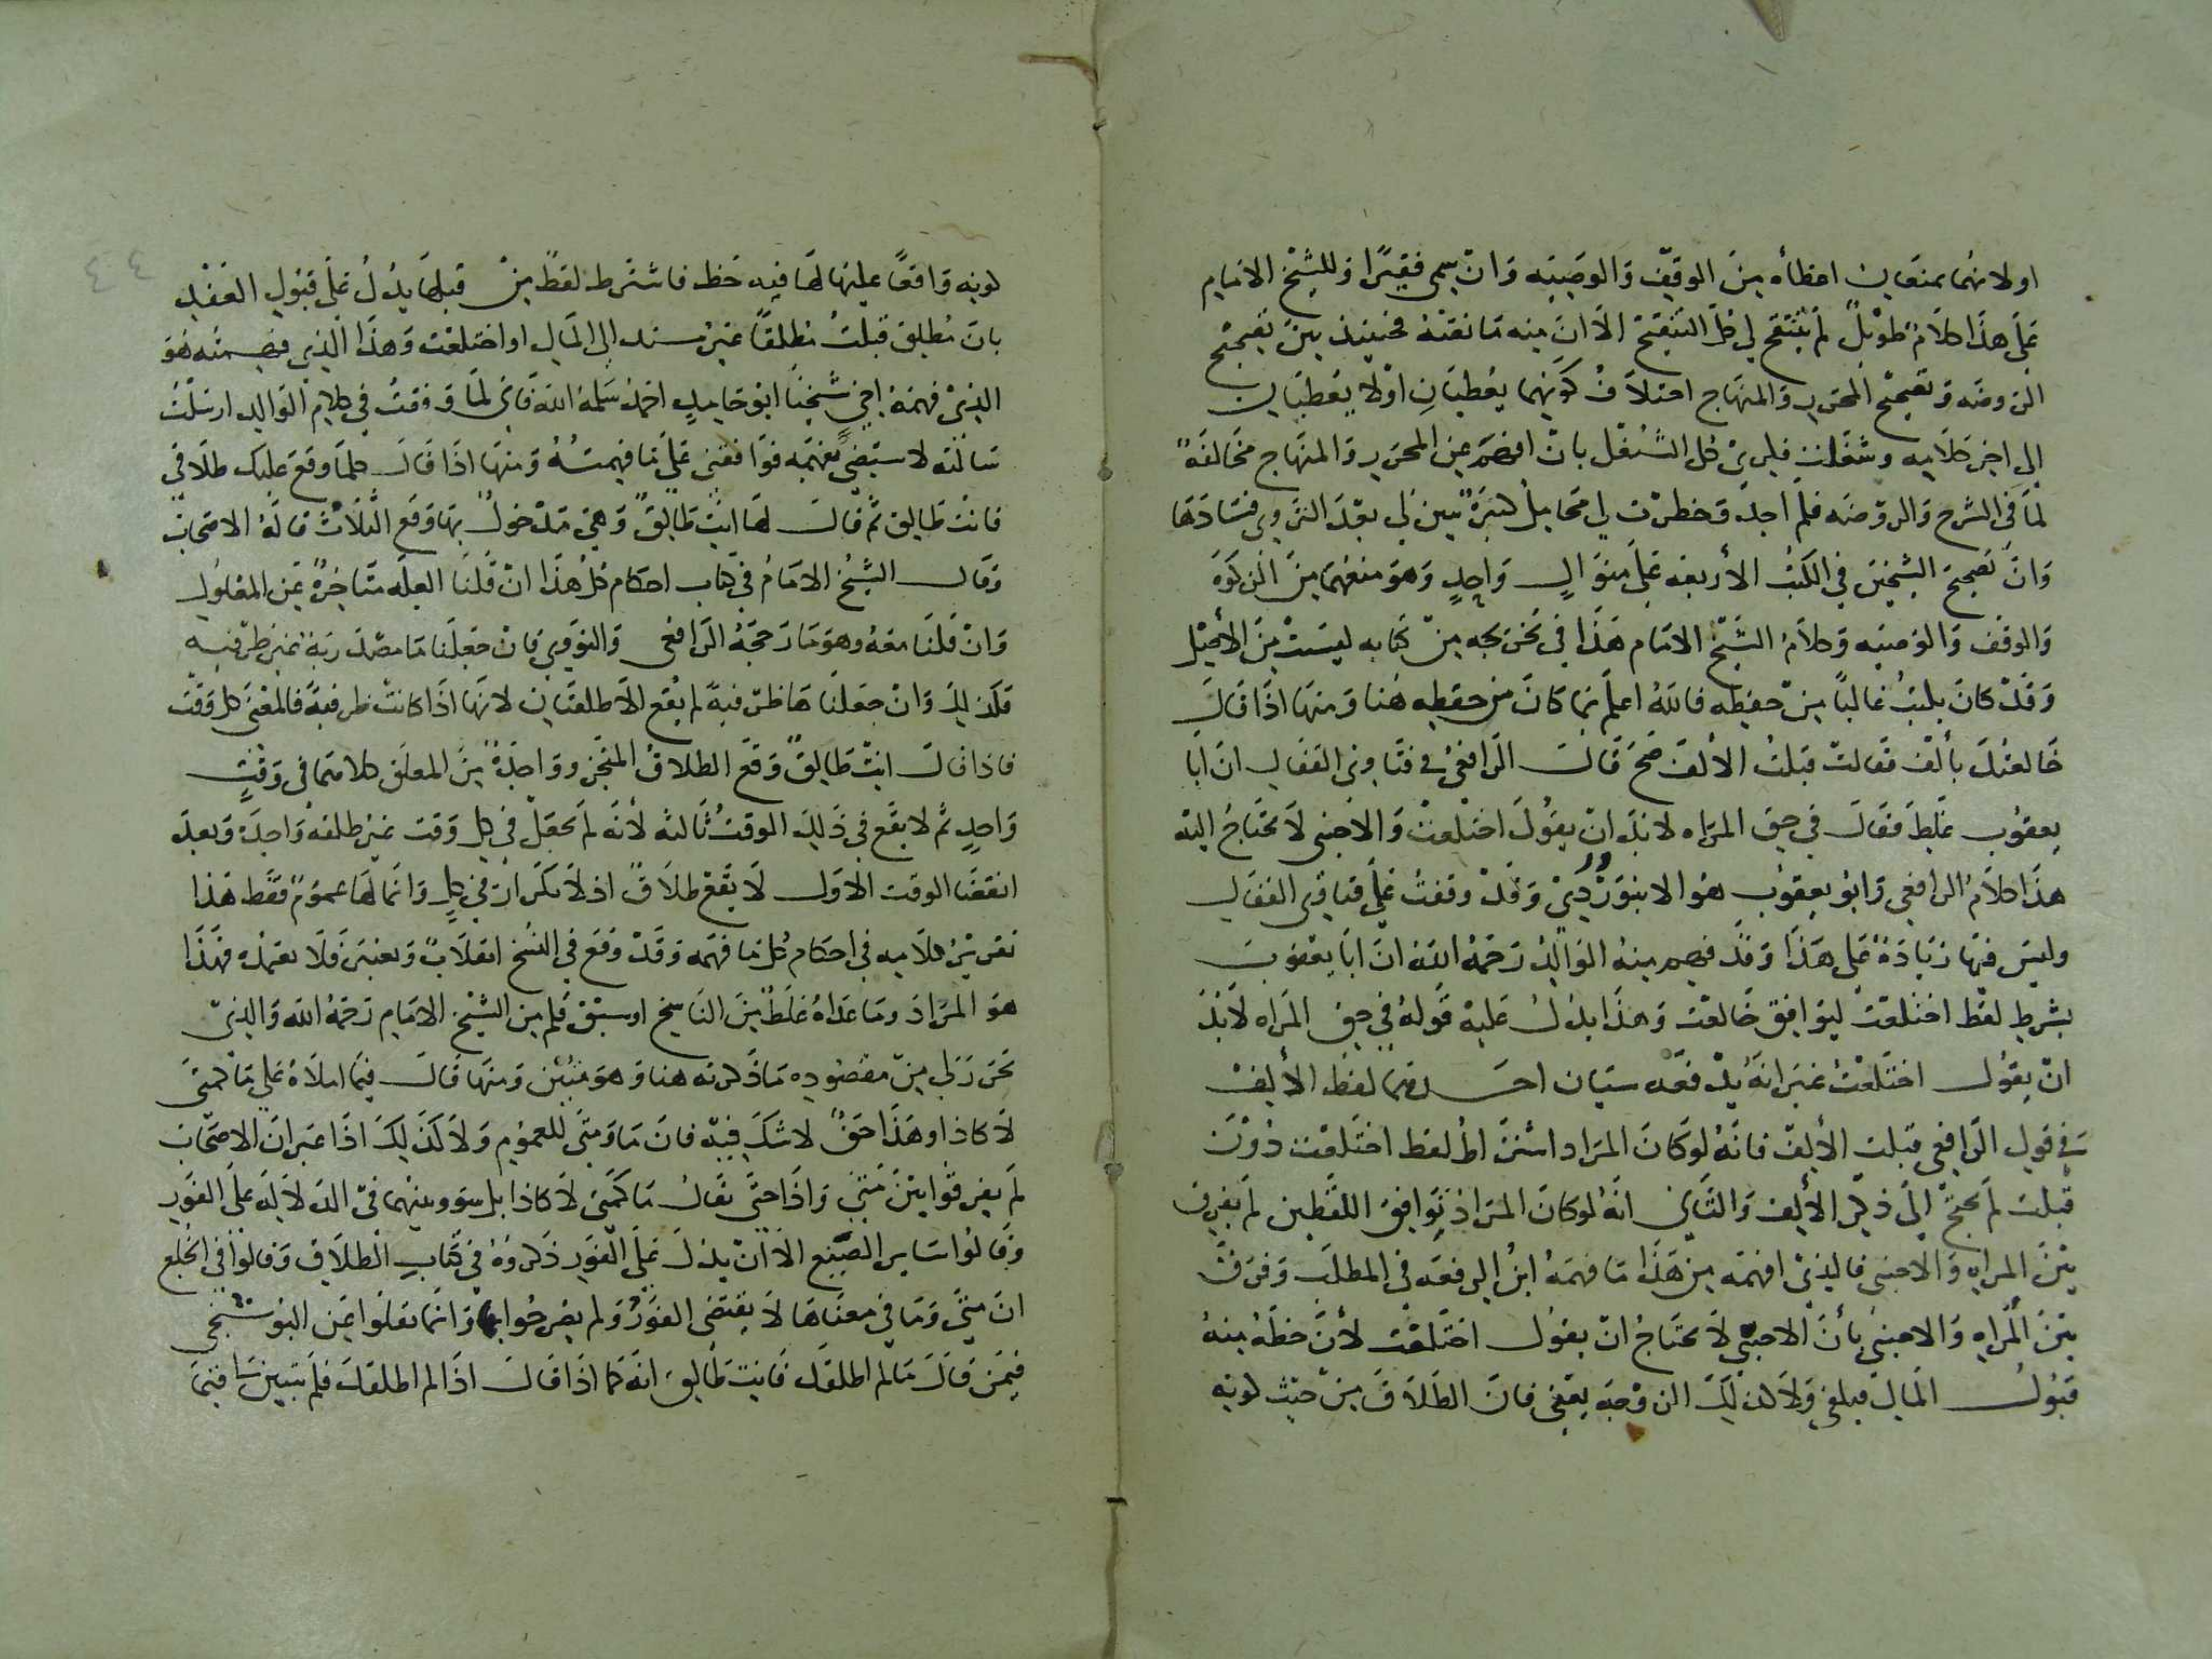 او لانهما يمنعان اعطاه من الوقف والوصيه وان سمى فقيرا وللشيخ الامام
على هذا كلام طويل لم يتنقح لي كل التنقيح الا ان منه ما نقلته فحينئذ بين تصحيح
الروضه وتصحيح المحرر والمنهاج اختلاف كونهما يعطيان او لا يعطيان
الى اخر كلامه وشغلت فكري كل الشغل بان افهم عن المحرر والمنهاج مخالفة
لما في الشرح والروضه فلم اجد وخطرت لي محامل كثيرة تبين لي بعد التروي فسادها
وان تصحيح الشيخين في الكتب الأربعه على منوال واحد وهو منعهما من الزكوة
والوقف والوصيه وكلام الشيخ الامام هذا في تخريجه من كتابه ليست من الأصل
وقد كان يكتب غالبا من حفظه فالله اعلم بما كان من حفظه هنا ومنها اذا قال
خالعتك بألف فقالت قبلت الألف صح قال الرافعي في فتاوى القفال ان ابا
يعقوب غلط فقال في حق المراه لا بد ان يقول اختلعت والاجنبي لا يحتاج اليه
هذا كلام الرافعي وابو يعقوب هو الابيوردي وقد وقفت على فتاوى القفال
وليس فيها زيادة على هذا وقد فهم منه الوالد رحمه الله ان ابا يعقوب
يشرط لفظ اختلعت ليوافق خالعت وهذا يدل عليه قوله في حق المراه لا بد
ان يقول اختلعت غير انه يدفعه سيان احدهما لفظ الألف
في قول الرافعي قبلت الألف فانه لو كان المراد اشتراط لفظ اختلعت دون
قبلت لم يحتج الى ذكر الألف والثاني انه لو كان المراد توافق اللفظين لم يفرق
بين المراه والاجنبي فالذي افهمه من هذا ما فهمه ابن الرفعه في المطلب وفرق
بين المراه والاجنبي بأن الاجنبي لا يحتاج ان يقول اختلعت لأن حظه منه
قبول المال فيلغي ولا كذلك الزوجه يعني فان الطلاق من حيث كونه
كونه واقعا عليها لها فيه حظ فاشترط لفظ من قبلها يدل على قبول العقد
بان تطلق قبلت مطلقا غير مسند الى المال او اختلعت وهذا الذي فهمته هو
الذي فهمه اخي شيخنا ابو حامد احمد سلمه الله فاني لما وقفت في كلام الوالد ارسلت
سالته لاستضي بفهمه فوافقني على ما فهمته ومنها اذا قال كلما وقع عليك طلاقي
فانت طالق ثم قال لها انت طالق وهي مدخول بها وقع الثلاث قاله الاصحاب
وقال الشيخ الامام في كتاب احكام كل هذا ان قلنا العله متاخرة عن المعلول
وان قلنا معه وهو ما رجحه الرافعي والنووي فان جعلنا ما مصدرية غير ظرفيه
فكذلك وان جعلناها ظرفية لم يقع الا طلقتان لانها اذا كانت ظرفية فالمعنى كل وقت
فاذا قال انت طالق وقع الطلاق المنجز وواحدة من المعلق كلاهما في وقت
واحد ثم لا يقع في ذلك الوقت ثالثه لأنه لم يجعل في كل وقت غير طلقه واحدة وبعد
انقضا الوقت الاول لا يقع طلاق اذ لا تكرار في كل وانما لها عموم فقط هذا
تقرير كلامه في احكام كل ما فهمه وقد وقع في النسخ انقلاب وتغيير فلا تعتمده فهذا
هو المراد وما عداه غلط من الناسخ او سبق قلم من الشيخ الامام رحمه الله والذي
تحرر لي من مقصوده ما ذكرته هنا وهو متين ومنها قال فيما املاه على متى
لا كاذا وهذا حق لا شك فيه فان ما ومتى للعموم ولا كذلك اذا غير ان الاصحاب
لم يفرقوا بين متى واذا حتى يقال ما كمتى لا كاذا بل سووا بينهما في الدلاله على الفور
وقالوا ساير الصيغ الا ان يدل على الفور ذكروه في كتاب الطلاق وقالوا في الخلع
ان متى وما في معناها لا يقتضي الفور ولم يصرحوا بما وانما نقلوا عن البوشنجي
فيمن قال ما لم اطلقك فانت طالق انه كما اذا قال اذا لم اطلقك فلم يتبين ما فيما